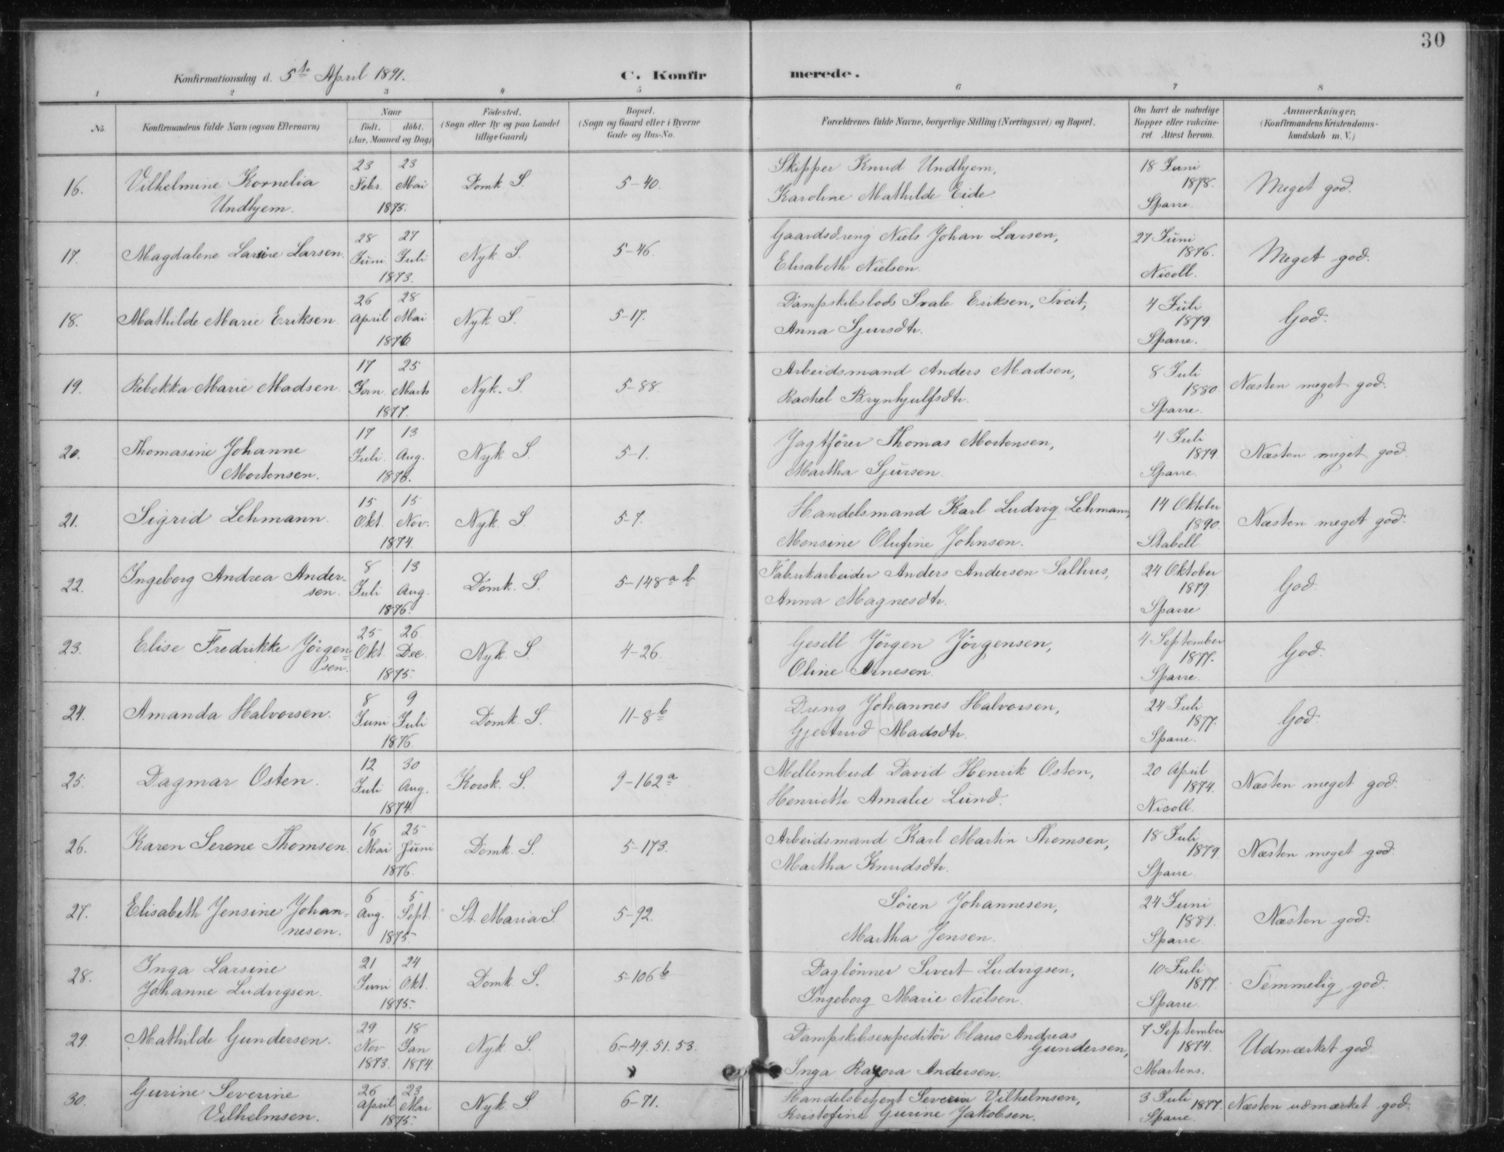 30
Konfirmationsdag d. 5te April 1891.
C. Konfirmerede.
1 2 3 4 5 6 7 8
No. Konfirmandens fulde Navn (ogsaa Efternavn) Naar født. døbt. (Aar, Maaned og Dag) Fødested. (Sogn eller By og paa Landet tillige Gaard) Bopæl. (Sogn og Gaard eller i Byerne Gade og Hus-No. Forældrenes fulde Navne, borgerlige Stilling (Næringsvei) og Bopæl. Om havt de naturlige Kopper eller vaccineret. Attest herom. Anmærkninger. (Konfirmandens Kristendomskundskab m. V.)
16. Vilhelmine Kornelia Undhjem. 23 Febr. 23 Mai 1875. Domk. S. 5-40. Skipper Knud Undhjem, Karoline Mathilde Eide 18 Juni 1878. Sparre Meget god.
17. Magdalene Larine Larsen. 28 Juni 27 Juli 1873. Nyk. S. 5-46. Gaardsdreng Niels Johan Larsen, Elisabeth Nielsen. 27 Juni 1876. Nicoll. Meget god.
18. Mathilde Marie Eriksen. 26 April 28 Mai 1876 Nyk. S. 5-17. Dampskibslods Svale Eriksen, Tveit, Anna Sjursdtr. 4 Juli 1879 Sparre. God.
19. Rebekka Marie Madsen. 17 Jan. 25 Marts 1877. Nyk. S 5-88 Arbeidsmand Anders Madsen, Rachel Brynhjulfsdtr. 8 Juli 1880 Sparre. Næsten meget god.
20. Thomasine Johanne Mortensen. 17 Juli 13 Aug. 1876. Nyk. S. 5-1. Jagtfører Thomas Mortensen, Martha Sjursen 4 Juli 1879. Sparre. Næsten meget god.
21. Sigrid Lehmann. 15 Okt. 15 Nov. 1874. Nyk. S 5-7. Handelsmand Karl Ludvig Lehmann, Monsine Olufine Johnsen. 14 Oktober 1890. Stabell Næsten meget god.
22. Ingeborg Andrea Andersen. 8 Juli 13 Aug. 1876. Domk. S. 5-148 a b Fabrikarbeider Anders Andersen Salhus, Anna Magnesdtr. 24 Oktober 1879. Sparre God.
23. Elise Fredrikke Jørgensen. 25 Okt. 26 Dec. 1875. Nyk. S. 4-26. Gesell Jørgen Jørgensen, Oline Arnesen. 4 September 1877. Sparre. God.
24. Amanda Halvorsen. 8 Juni 9 Juli 1876 Domk. S. 11-8 b Dreng Johannes Halvorsen, Gjertrud Madsdtr. 24 Juli 1877. Sparre. God.
25. Dagmar Osten. 12 Juli 30 Aug. 1874. Korsk. S. 9-162 a Mellembud David Henrik Osten, Henriette Amalie Lund. 20 April 1874. Nicoll. Næsten meget god.
26. Karen Serene Thomsen 16 Mai 25 Juni 1876. Domk. S 5-173. Arbeidsmand Karl Martin Thomsen, Martha Knudsdtr. 18 Juli 1879. Sparre. Næsten meget god.
27. Elisabeth Jensine Johannesen. 6 Aug. 5 Sept. 1875 St. Maria S 5-92. Søren Johannesen, Martha Jensen. 24 Juni 1881. Sparre. Næsten god.
28. Inga Larsine Johanne Ludvigsen. 21 Juni 24 Okt. 1875. Domk. S. 5-106 b Dagløn­ner Sivert Ludvigsen, Ingeborg Marie Nielsen. 10 Juli 1877 Sparre. Temmelig god.
29 Mathilde Gundersen. 29 Nov. 1873. 18 Jan. 1874. Nyk. S. 6-49. 51. 53. Dampskibsexpeditør Claus Andreas Gundersen, Inga Andersen. 7 September 1874. Martens. Udmærket god
30. Gurine Severine Vilhelmsen. 26 April 23 Mai 1875. Nyk. S 6-71. Handelsbetjent Severin Vilhelmsen, Kristofine Gurine Jakobsen. 3 Juli 1877. Sparre Næsten udmærket god.